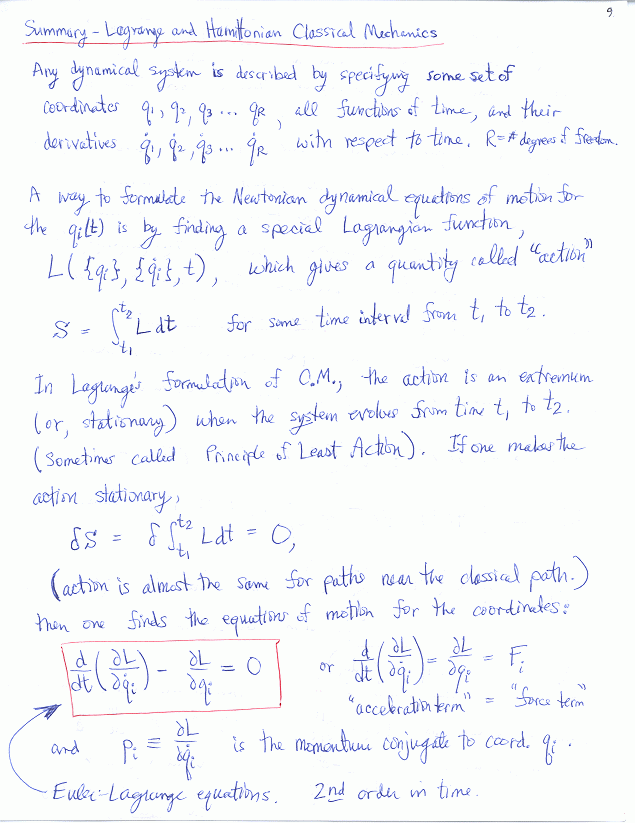 9
Summary - Lagrange and Hamiltonian Classical Mechanics
Any dynamical system is described by specifying some set of
coordinates q₁, q₂, q₃ ... q_R, all functions of time, and their
derivatives q̇₁, q̇₂, q̇₃ ... q̇_R with respect to time. R = # degrees of freedom.
A way to formulate the Newtonian dynamical equations of motion for
the qᵢ(t) is by finding a special Lagrangian function,
L({qᵢ}, {q̇ᵢ}, t), which gives a quantity called "action"
S = ∫_{t₁}^{t₂} L dt for some time interval from t₁ to t₂.
In Lagrange's formulation of C.M., the action is an extremum
(or, stationary) when the system evolves from time t₁ to t₂.
(Sometimes called Principle of Least Action). If one makes the
action stationary,
δS = δ∫_{t₁}^{t₂} L dt = 0,
(action is almost the same for paths near the classical path.)
then one finds the equations of motion for the coordinates:
d/dt (∂L/∂q̇ᵢ) - ∂L/∂qᵢ = 0 or d/dt (∂L/∂q̇ᵢ) = ∂L/∂qᵢ = Fᵢ
"acceleration term" = "force term"
and pᵢ ≡ ∂L/∂q̇ᵢ is the momentum conjugate to coord. qᵢ.
Euler-Lagrange equations. 2nd order in time.